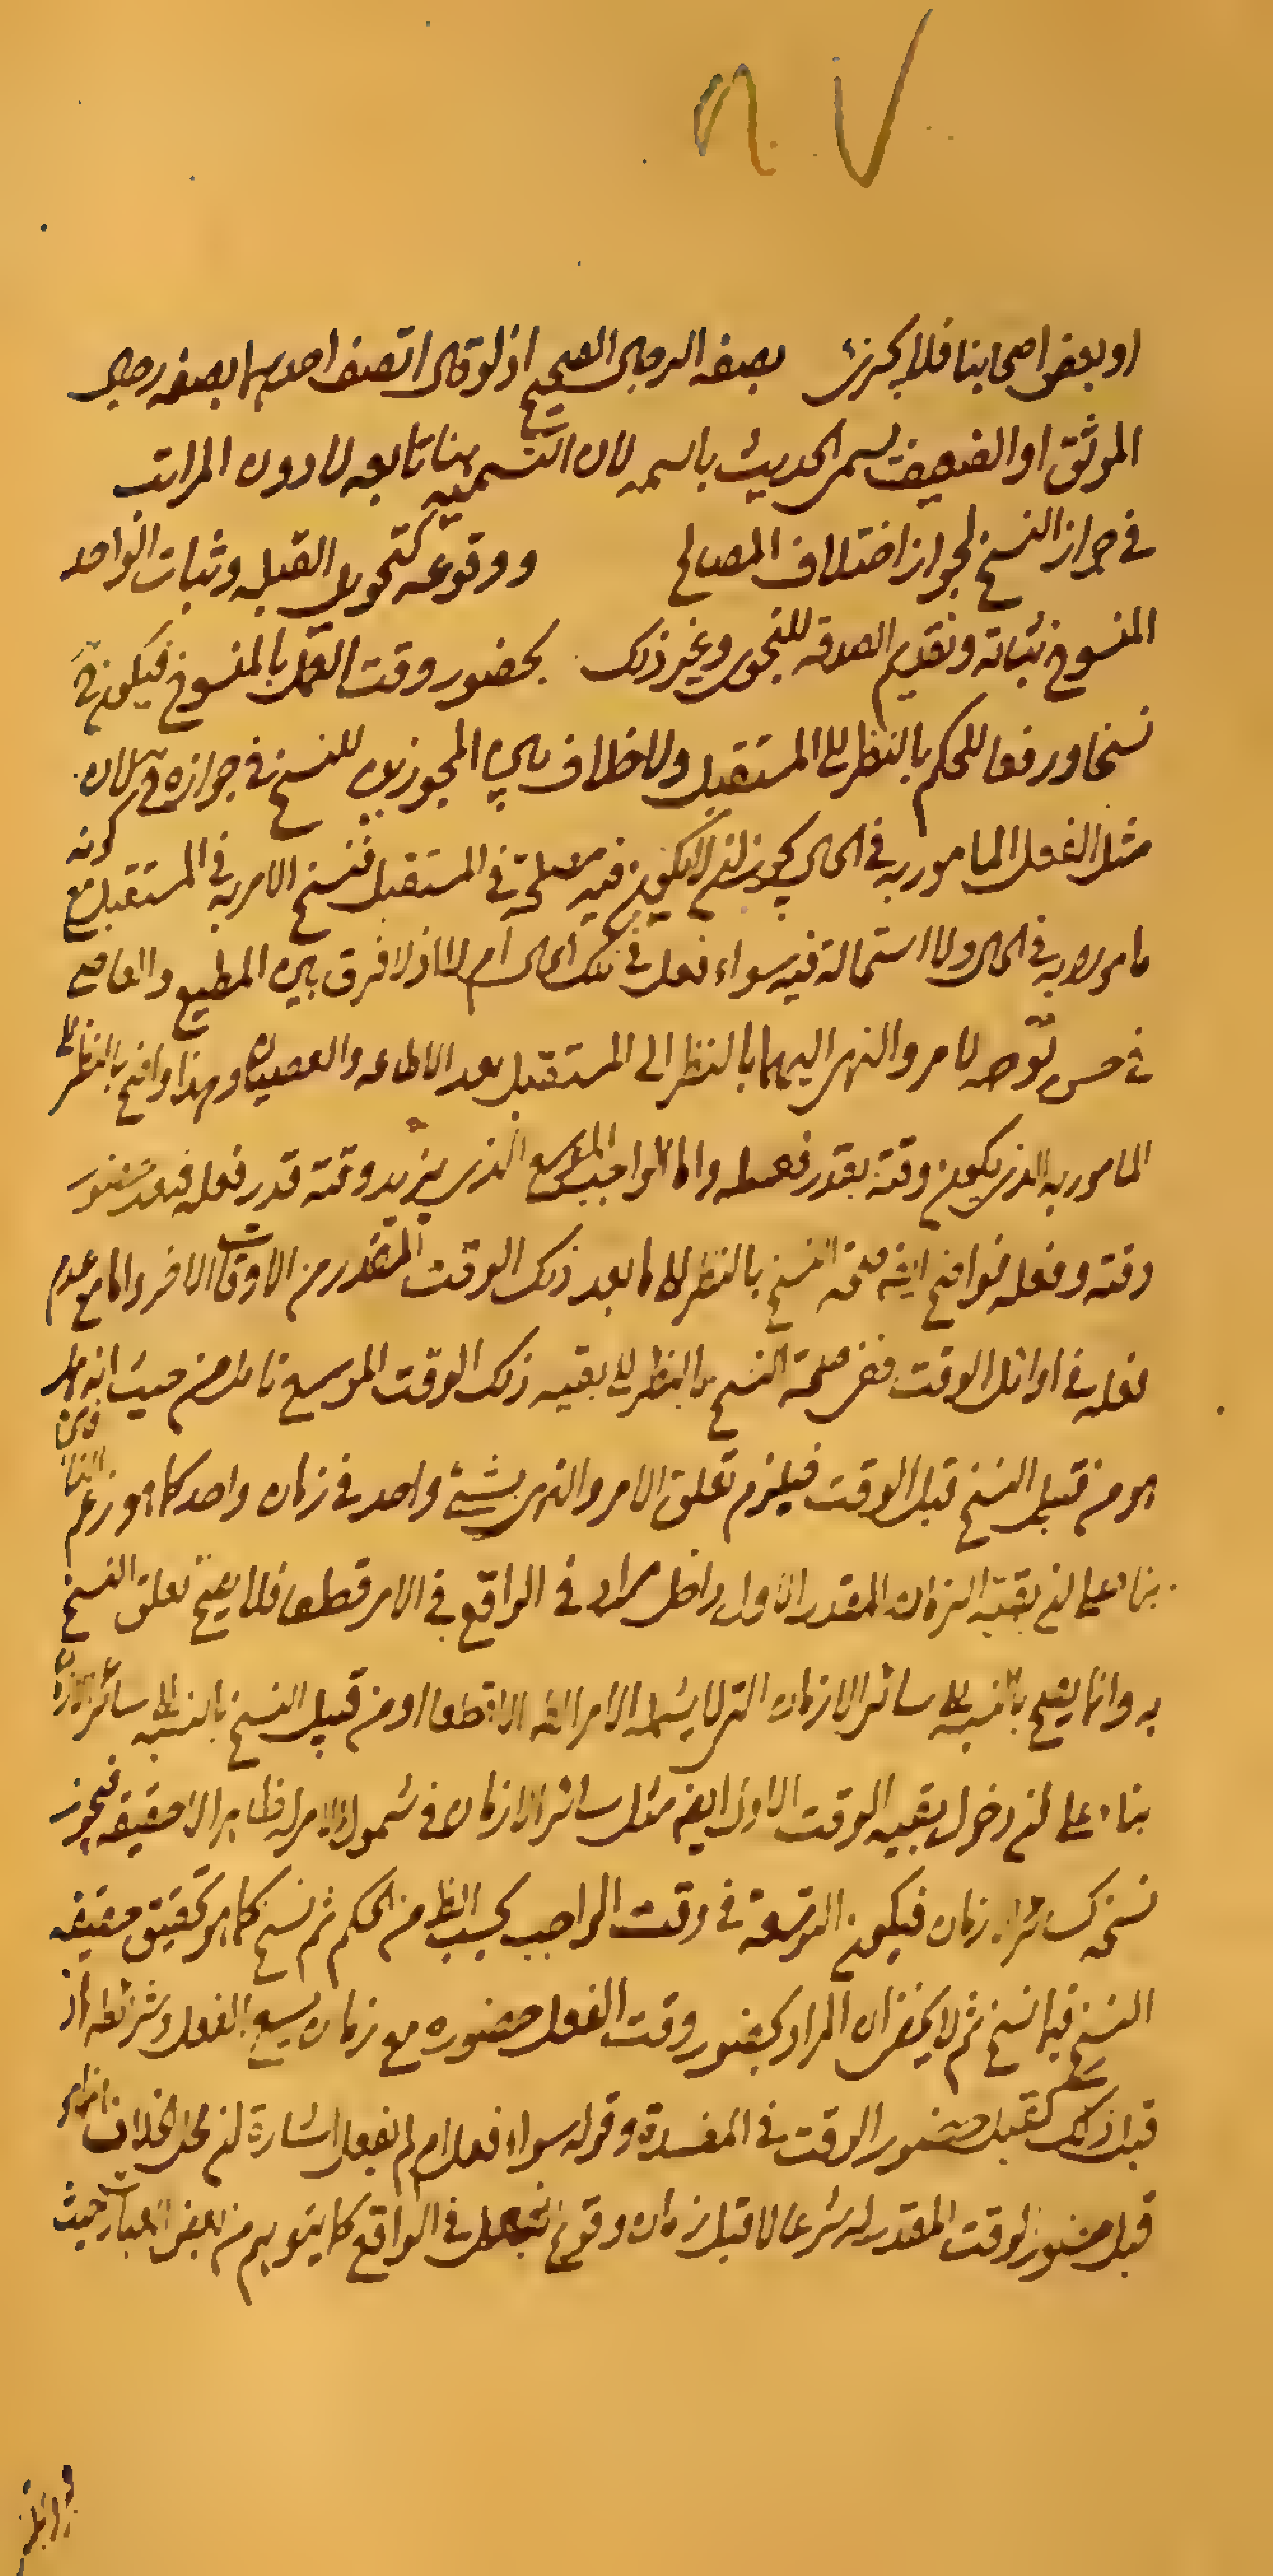 او بعض اصحابنا فلا يجزى بصفه الرجال الصحيح اذ لو قال اتصف احدهما بصفه رجال
الموثق او الضعيف يسمى الحديث باسمه لان التسميه هنا تابعه لادون المراتب
فى جواز النسخ لجواز اختلاف المصالح ووقوعه كتحويل القبله وثبات الواحد
المنسوخ بثباته وتقديم الصدقه للنجوى وغير ذلك بحضور وقت العمل بالمنسوخ فيكون
نسخا ورفعا للحكم بالنظر الى المستقبل ولا خلاف بين المجوزين للنسخ فى جوازه لان
مثل الفعل المامور به فى الحال يجوز ان لا يكون فيه مصلحة فى المستقبل فنسخ الامر به فى المستقبل مع كونه
مامورا به فى الحال ولا استحالة فيه سواء فعل فى تلك الحال ام لا اذ لا فرق بين المطيع والعاصى
فى حسن توجه الامر والنهى اليهما بالنظر الى المستقبل بعد الاطاعه والعصيان وهذا واضح بالنظر الى
المامور به الذى يكون وقته بقدر فعله واما الواجب الموسع الذى يزيد وقته قدر فعله فبعد حضور
وقته وفعله فواضح ايضا صحة النسخ بالنظر الى ما بعد ذلك الوقت المقدر من الاوقات الاخر واما مع عدم
فعله فى اوائل الوقت ففى صحة النسخ بالنظر الى بقيه ذلك الوقت الموسع تامل من حيث انه هل
هو من قبيل النسخ قبل الوقت فيلزم تعلق الامر والنهى بشئ واحد فى زمان واحد كما هو زعم
بناء على ان بقية الزمان المقدر الاول داخل مراد فى الواقع فى الامر قطعا فلا يصح تعلق النسخ
به وانما يصح بالنسبه الى سائر الازمان التى لا يشمله الامر الا قطعا او من قبيل النسخ بالنسبه الى سائر الازمان
بناء على ان دخول بقيه الوقت الاول ايضا مثل سائر الازمان فى شمول الامر له ظاهرا لا حقيقه فيجوز
نسخه كسائر ازمان فيكون التوسعة فى وقت الواجب بحسب الظ من الحكم ثم نسخ كما هو تحقيق حقيقه
النسخ فيما نسخ ثم لا يخفى ان المراد بحضور وقت الفعل حضوره مع زمان يسع الفعل وشرائطه اذ
قبل ذلك كقبل حضور الوقت فى المفسدة وقوله سواء فعل ام لم يفعل اشارة ان محل الخلاف
قبل حضور الوقت المقدر له شرعا لا قبل زمان وقوع الفعل فى الواقع كما يتوهم من بعض العبارات حيث